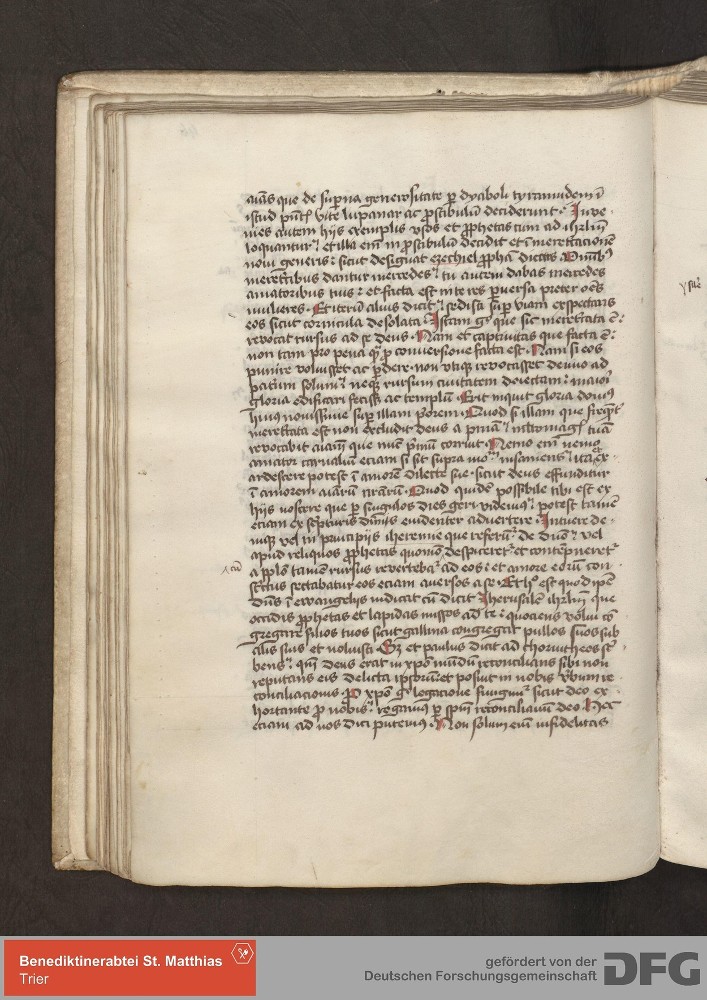 aīas que de superna generositate ꝑ dyaboli tyrannidem ī
istud pn̄tis vite lupanar ac ꝓstibulū deciderunt · Inve
nies autem hijs exemplis vsos et ꝓphetas cum ad ihrlm̄
loquantur · et illa em̄ in ꝓstibulū decidit et ī meretricacionē
noui generis · sicut designat ezechiel ꝓpha dicens · Omībꝰ
meretricibus dantur mercedes · tu autem dabas mercedes
amatoribus tuis · et facta est in te res ꝑuersa preter oēs
mulieres · Et iterū alius dicit · sedisti suꝑ viam exspectans
eos sicut cornicula desolata · Istam gͦ que sic meretricata ē ·
reuocat rursus ad se deus · Nam et captiuitas que facta ē ·
non tam pro pena qͣꝫ ꝓ conuersione facta est · Nam si eos
punire voluisset ac ꝑdere · non vtiqꝫ reuocasset denuo ad
patriam solum · neqꝫ rursum ciuitatem deiectam · maiori
gloria edificari fecisset ac templū · Erit inquit gloria domꝰ
huiꝰ nouissime super illam priorem · Quod si illam que frequēter
meretricata est non excludit deus a pn̄ia · multomagis tuā
reuocabit aīam que nūc primū corruit · Nemo em̄ nemo
amator carnaliū eciam si sit supra modū insaniens · ita ꝓ
ardescere potest ī amorē dilecte sue · sicut deus effunditur
ī amorem aīarū nr̄arū · Quod quidē possibile tibi est ex
hijs noscere que ꝑ singulos dies geri videmꝰ · potest tamē
eciam ex scripturis diuinis euidenter aduertere · Intuere de
niqꝫ vel in principijs iheremie que referūtur de deo · vel
apud reliquos ꝓphetas quomō despiceretur et contēpneretur
a pplo tamen rursus reuertebatur ad eos · et amore eorū con
strictus sectabatur eos eciam auersos a se · Et hͦ est quod ipē
dn̄s ī ewangelijs indicat cū dicit Iherusalē ihrlm̄ que
occidis ꝓphetas et lapidas missos ad te · quociens volui cō
gregare filios tuos sicut gallina congregat pullos suos sub
alis suis et noluisti · Sꝫ et paulus dicit ad chorintheos scri
bens · qm̄ deus erat in xpō mūdū reconcilians sibi non
reputans eis delicta ipsorum et posuit in nobis verbum re
conciliacionis · Pro xpō gͦ legacione fungimur sicut deo ex
hortante ꝓ nobis · rogamus ꝑ xpm̄ reconciliamī deo · Hec
eciam ad nos dici putemus · Non solum em̄ infidelitas
Benediktinerabtei St. Matthias
Trier
gefördert von der
Deutschen Forschungsgemeinschaft
DFG